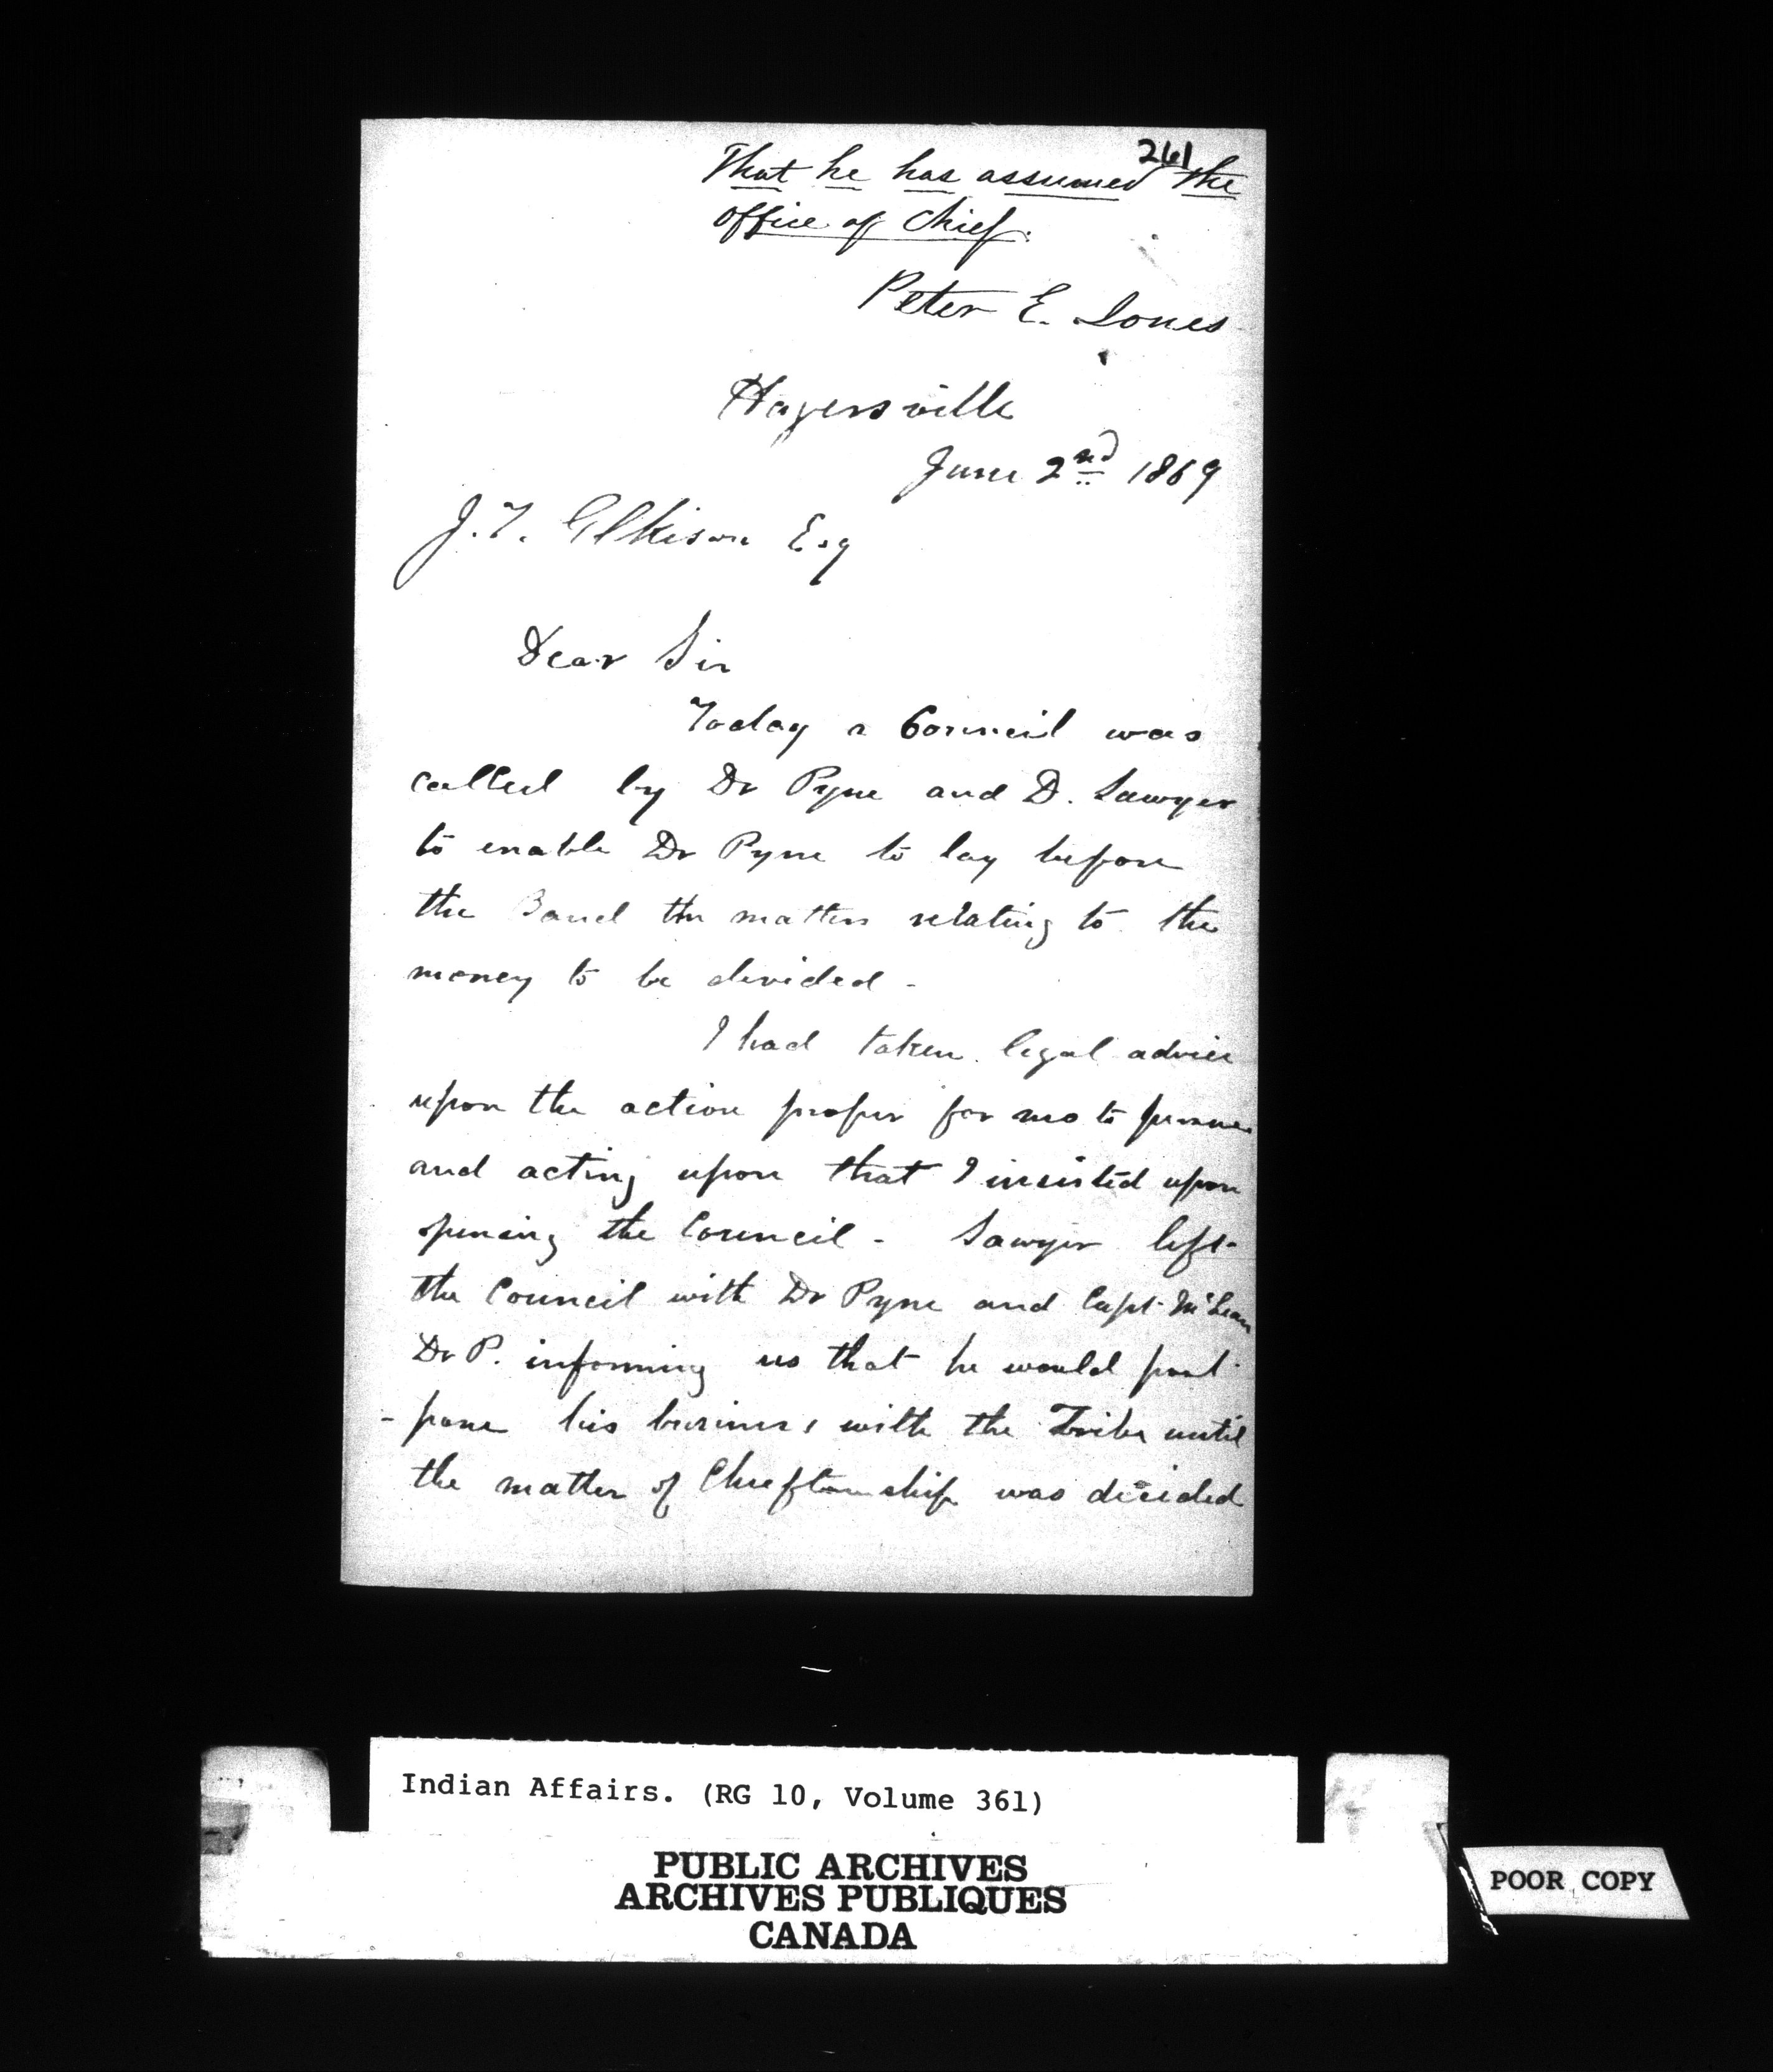 261
That he has assumed the
office of Chief.
Peter E. Jones
Hagersville
June 2nd 1869
J. T. Gilkison Esq
Dear Sir
Today a Council was
called by Dr Pyne and D. Sawyer
to enable Dr Pyne to lay before
the Band the matters relating to the
money to be divided -
I had taken legal advice
upon the action proper for me to pursue
and acting upon that I insisted upon
opening the Council - Sawyer left
the Council with Dr Pyne and Capt. McLean
Dr P. informing us that he would post
- pone his business with the Tribe until
the matter of Chieftainship was decided
Indian Affairs. (RG 10, Volume 361)
PUBLIC ARCHIVES
ARCHIVES PUBLIQUES
CANADA
POOR COPY